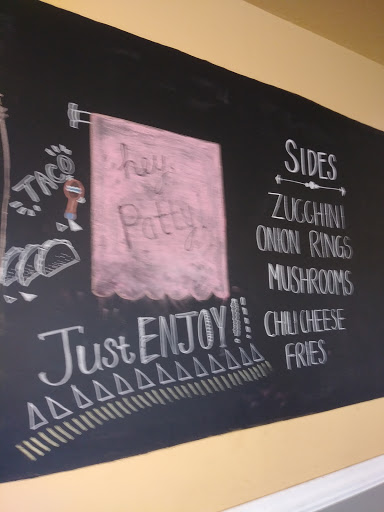 TACO
hey.
Patty.
Just ENJOY!!
SIDES
ZUCCHINI
ONION RINGS
MUSHROOMS
CHILI CHEESE
FRIES